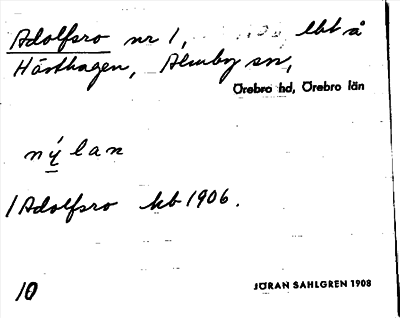 Adolfsro nr 1, lht å
Hästhagen, Almby sn,
Örebro hd, Örebro län
nýlan
1 Adolfsro kb 1906.
10
JÖRAN SAHLGREN 1908